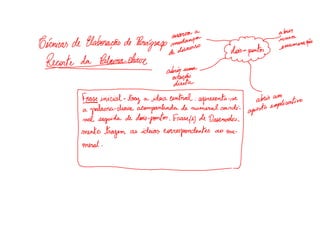 Técnicas de Elaboração de Parágrafo
Recorte da Palavra-chave
marca a
mudança
de discurso
dois-pontos
abrir
uma
enumeração
abrir uma
citação
direta
abrir um
aposto explicativo
Frase inicial - traz a ideia central, apresenta-se
a palavra-chave acompanhada de numeral cardi-
nal seguida de dois-pontos. Frase(s) de Desenvolvi-
mento trazem as ideias correspondentes ao nu-
meral.